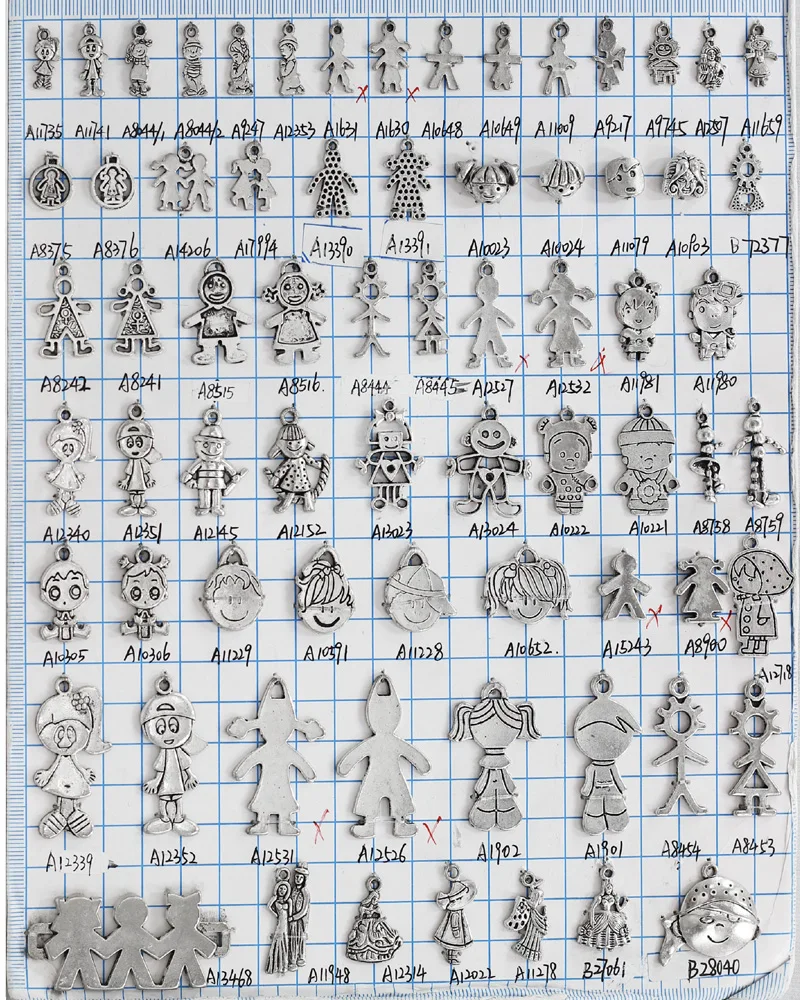 A11735 A11741 A8044/1 A8044/2 A9247 A12353 A1631 x A1630 x A10648 A10649 A11009 A9217 A9745 A12507 A11659
A8375 A8376 A14206 A17994 A13390 A13391 A10023 A10024 A11079 A10903 B72377
A8242 A8241 A8515 A8516. A8444 A8445 A12527 x A12532 x A11981 A11980
A12340 A12351 A12145 A12152 A13023 A13024 A10222 A10221 A8758 A8759
A10305 A10306 A11229 A10591 A11228 A10652. A15243 x A8900 x A12718
A12339 A12352 A12531 x A12526 x A1902 A1901 A8454 A8453
A13468 A11948 A12314 A12022 A11278 B27061 B28040